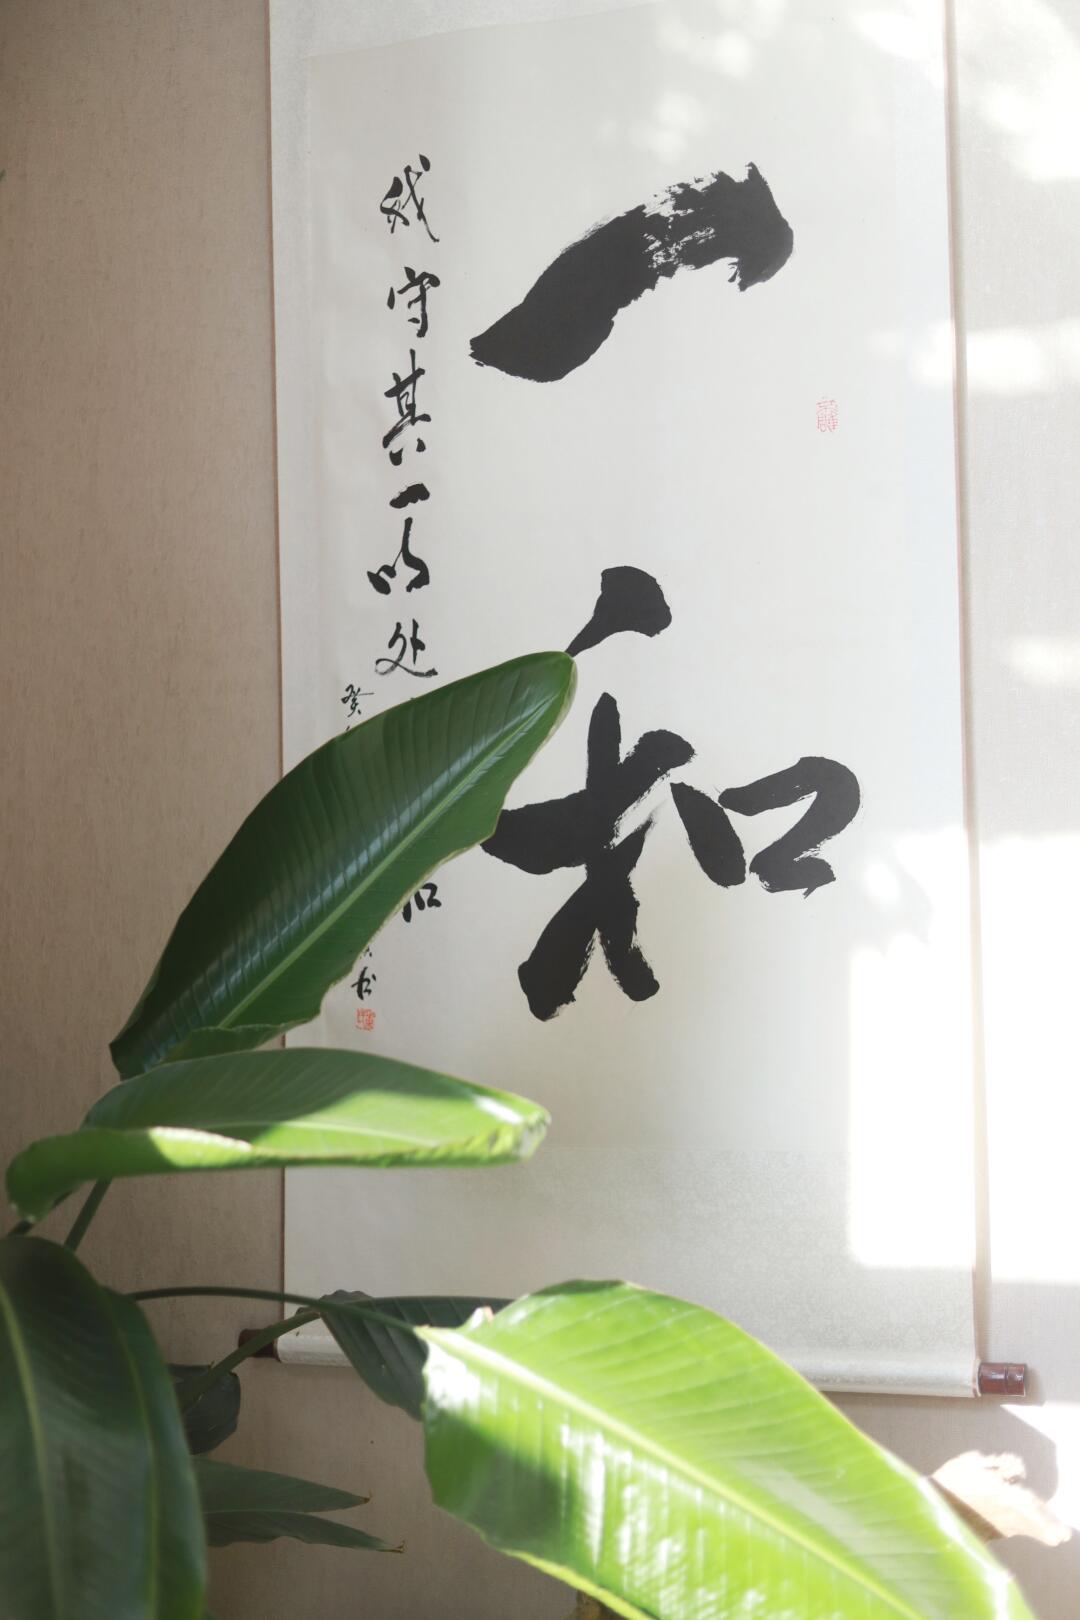 一和
我守其一以处
和
癸
书